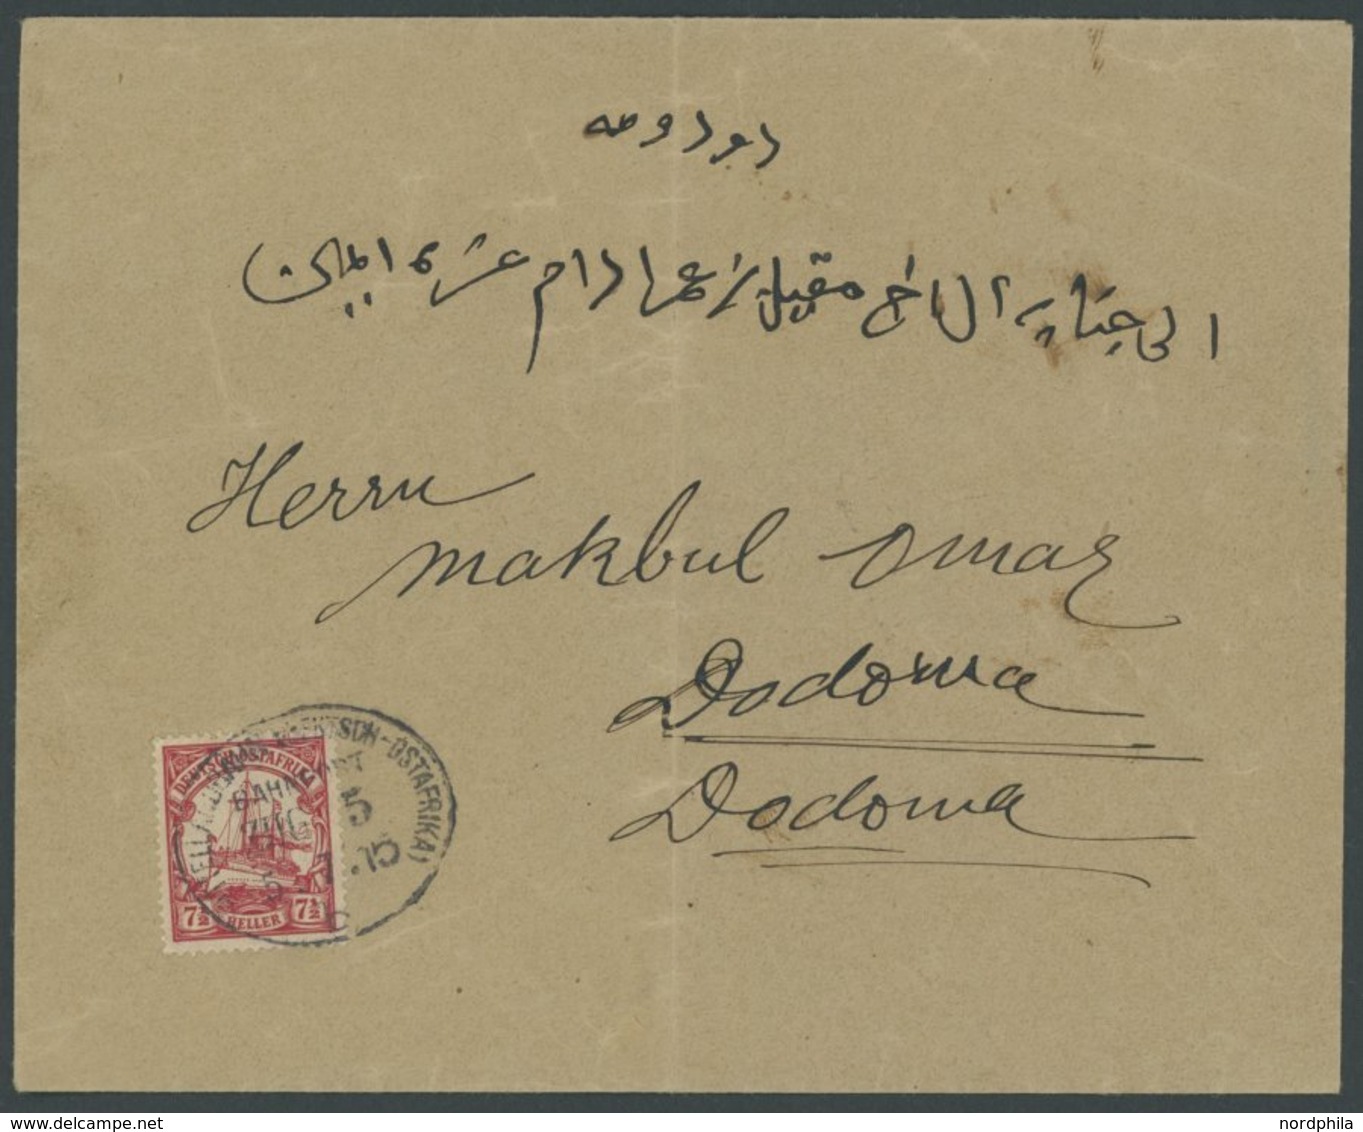 دودومه
الى جناب الاخ مقبل بن عمر ادام عزه امين
Herrn
Makbul Omar
Dodoma
Dodoma
DEUTSCH-OSTAFRIKA
7½ HELLER 7½
(DEUTSCH-OSTAFRIKA)
BAHNPOST
ZUG 5
5 7.15
C
delcampe.net
nordphila